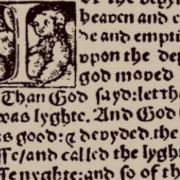 heaven and e
de and emptie
vpon the dep
god moved
Than God sayd: let the
was lyghte. And God
as good: & devyded. the
sse/and called the lygh
fenyghte: and so of th